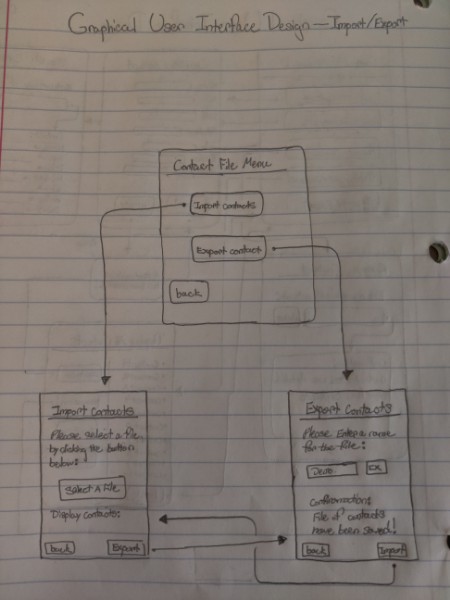 Graphical User Interface Design — Import/Export
Contact File Menu
Import contacts
Export contact
back
Import Contacts
Please select a file
by clicking the button
below:
Select A File
Display Contacts:
back
Export
Export Contacts
Please Enter a name
for the file:
Demo
OK
Confirmation:
File of contacts
have been saved!
back
Import